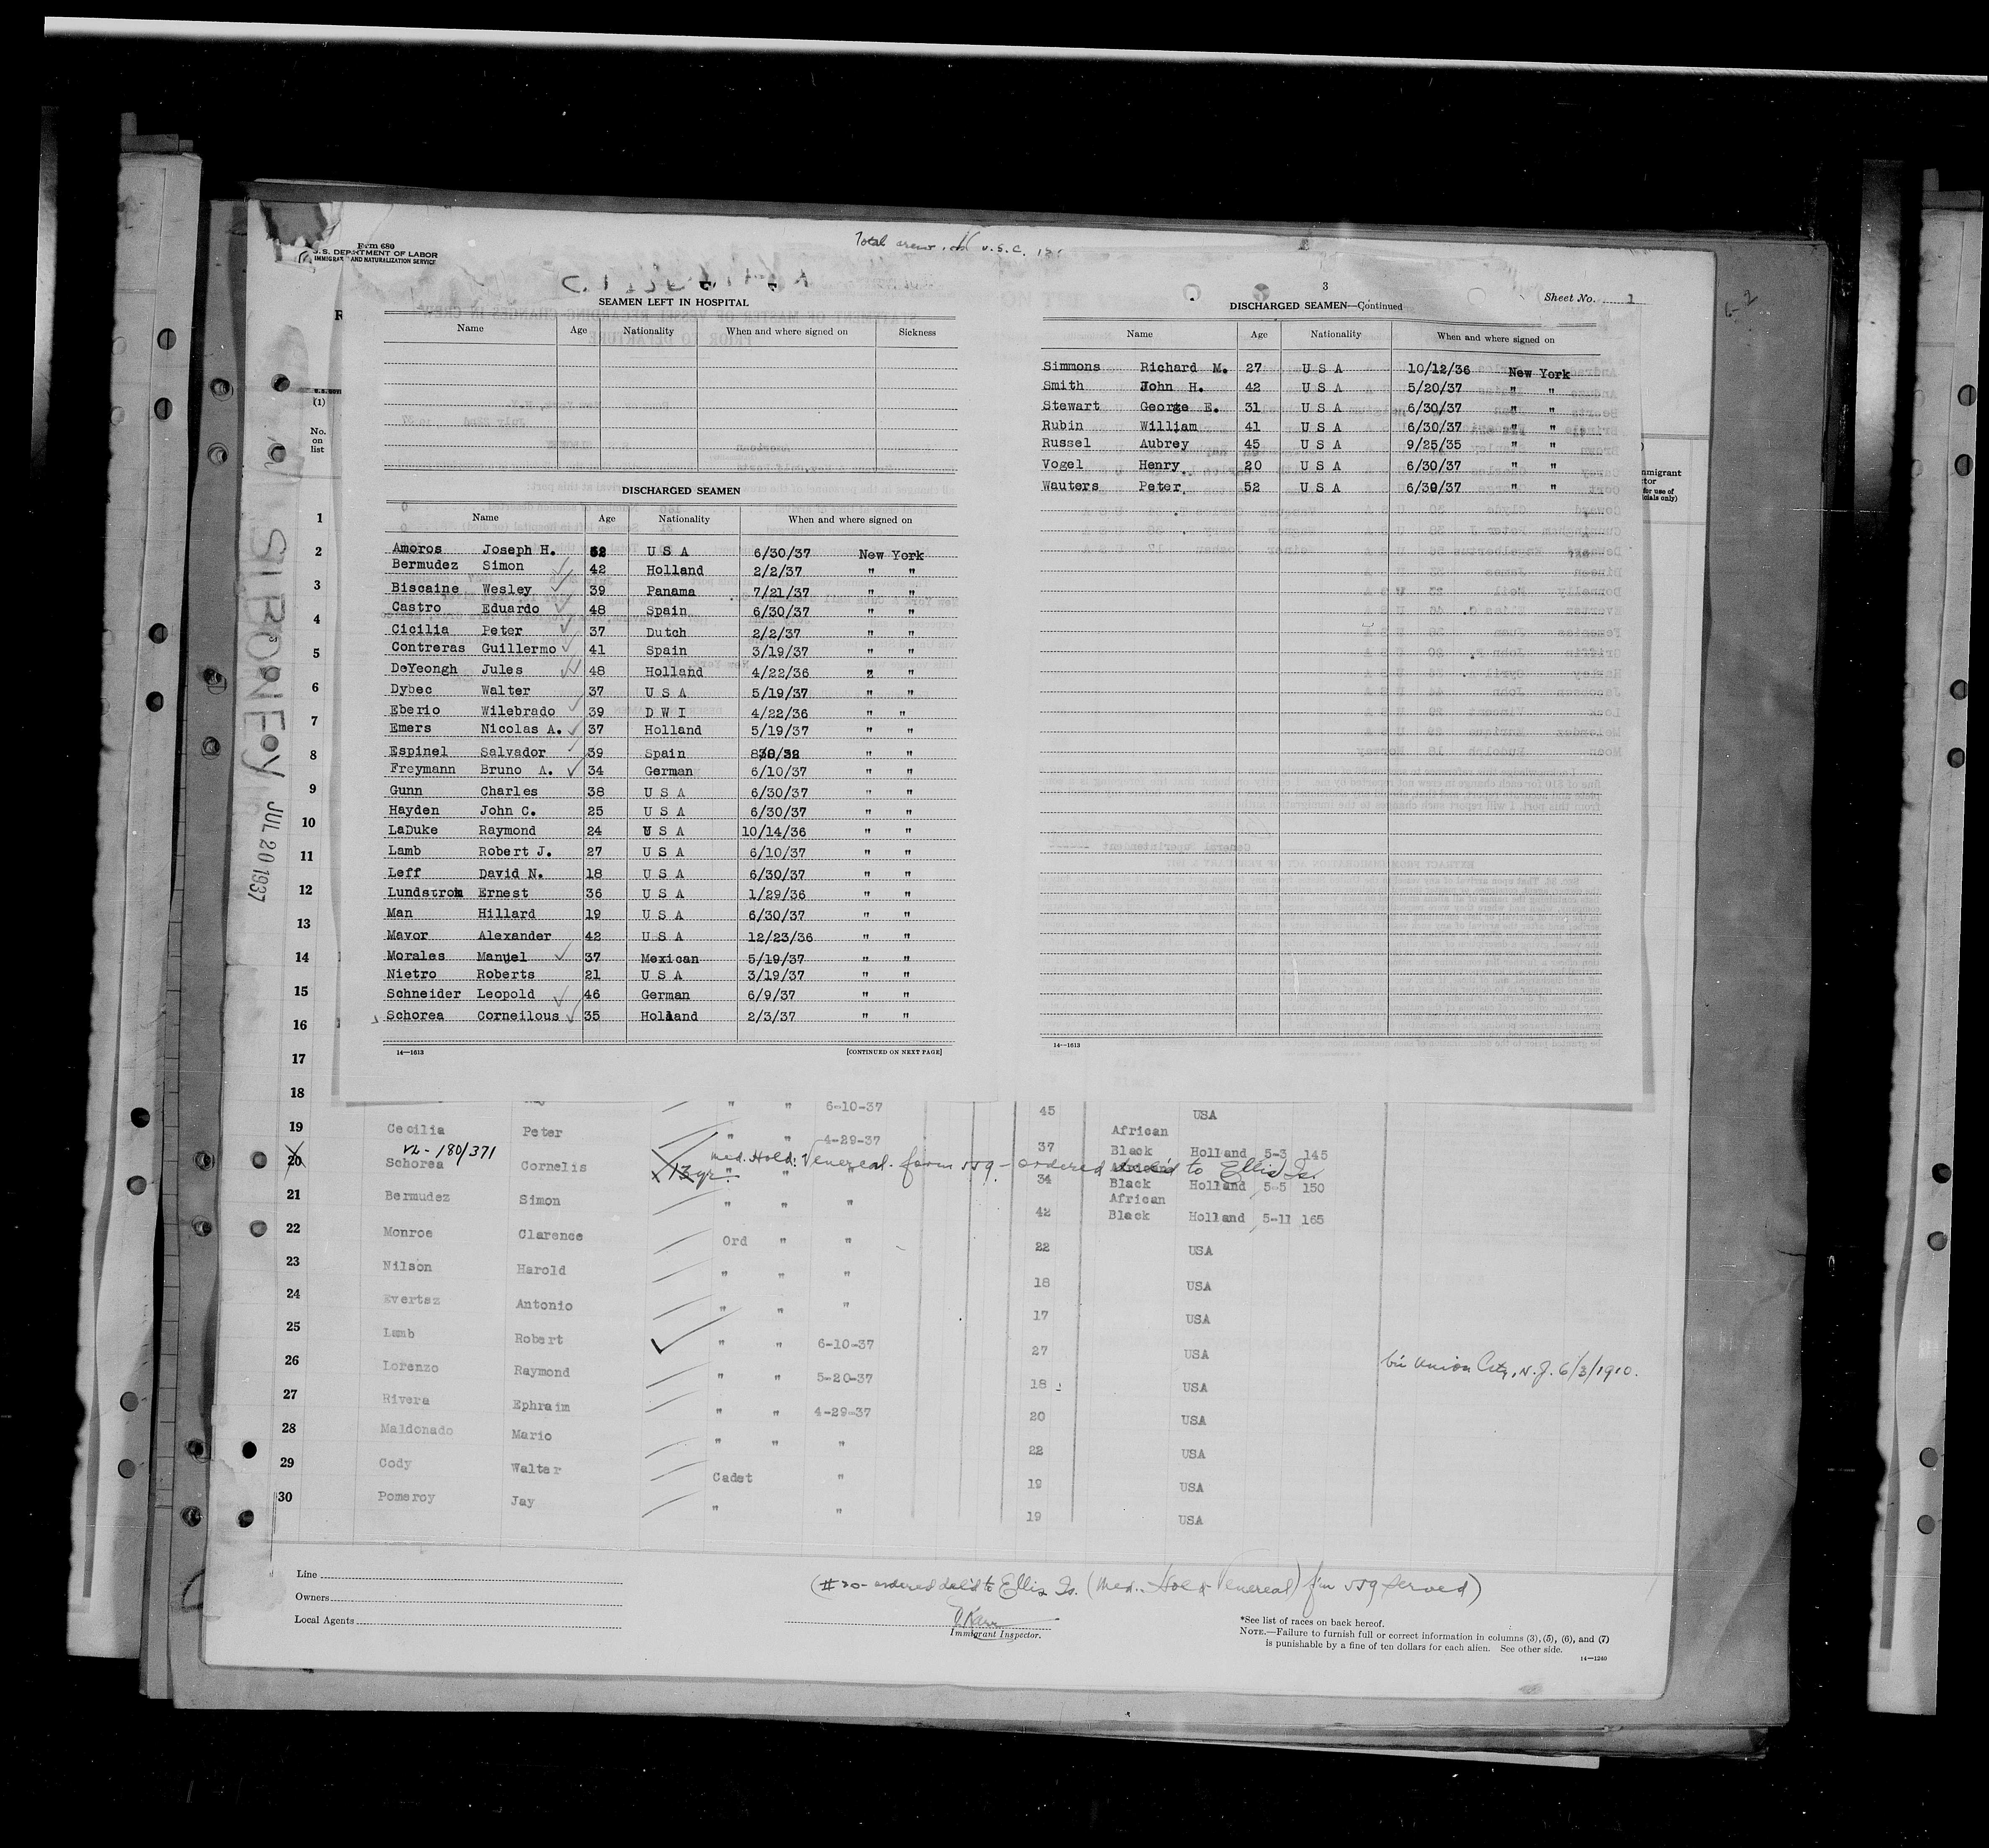 Form 680
U.S. DEPARTMENT OF LABOR
IMMIGRATION AND NATURALIZATION SERVICE
Total crew U.S.C.
SEAMEN LEFT IN HOSPITAL
Name Age Nationality When and where signed on Sickness
DISCHARGED SEAMEN
Name Age Nationality When and where signed on
Amoros Joseph H. U S A 6/30/37 New York
Bermudez Simon 42 Holland 2/2/37 " "
Biscaine Wesley 39 Panama 7/21/37 " "
Castro Eduardo 48 Spain 6/30/37 " "
Cicilia Peter 37 Dutch 2/2/37 " "
Contreras Guillermo 41 Spain 3/19/37 " "
DeYeongh Jules 48 Holland 4/22/36 " "
Dybec Walter 37 U S A 5/19/37 " "
Eberio Wilebrado 39 D W I 4/22/36 " "
Emers Nicolas A. 37 Holland 5/19/37 " "
Espinel Salvador 39 Spain " "
Freymann Bruno A. 34 German 6/10/37 " "
Gunn Charles 38 U S A 6/30/37 " "
Hayden John C. 25 U S A 6/30/37 " "
LaDuke Raymond 24 U S A 10/14/36 " "
Lamb Robert J. 27 U S A 6/10/37 " "
Leff David N. 18 U S A 6/30/37 " "
Lundstrom Ernest 36 U S A 1/29/36 " "
Man Hillard 19 U S A 6/30/37 " "
Mavor Alexander 42 U S A 12/23/36 " "
Morales Manuel 37 Mexican 5/19/37 " "
Nietro Roberts 21 U S A 3/19/37 " "
Schneider Leopold 46 German 6/9/37 " "
Schorea Corneilous 35 Holland 2/3/37 " "
14—1613 [CONTINUED ON NEXT PAGE]
3
DISCHARGED SEAMEN—Continued
Sheet No. 1
Name Age Nationality When and where signed on
Simmons Richard M. 27 U S A 10/12/36 New York
Smith John H. 42 U S A 5/20/37 " "
Stewart George E. 31 U S A 6/30/37 " "
Rubin William 41 U S A 6/30/37 " "
Russel Aubrey 45 U S A 9/25/35 " "
Vogel Henry 20 U S A 6/30/37 " "
Wauters Peter 52 U S A 6/30/37 " "
14—1613
SIBONEY JUL 20 1937
(1)
No. on list
1
2
3
4
5
6
7
8
9
10
11
12
13
14
15
16
17
18
" " 6-10-37 45 USA
19 Cecilia Peter " " 4-29-37 37 African Black Holland 5-3 145
VL-180/371
Med. Hold: Venereal. form 559 - ordered del'd to Ellis Is.
20 Schorea Cornelis 13 yr. " " 34 African Black Holland 5-5 150
21 Bermudez Simon " " " 42 African Black Holland 5-11 165
22 Monroe Clarence Ord " " 22 USA
23 Nilson Harold " " " 18 USA
24 Evertsz Antonio " " " 17 USA
25 Lamb Robert " " 6-10-37 27 USA
bn Union City, N.J. 6/3/1910.
26 Lorenzo Raymond " " 5-20-37 18 USA
27 Rivera Ephraim " " 4-29-37 20 USA
28 Maldonado Mario " " " 22 USA
29 Cody Walter Cadet " 19 USA
30 Pomeroy Jay " " 19 USA
Line
Owners
Local Agents
(#20 - ordered del'd to Ellis Is. (Med. Hold Venereal) f'm 559 served)
Immigrant Inspector.
*See list of races on back hereof.
NOTE.—Failure to furnish full or correct information in columns (3), (5), (6), and (7)
is punishable by a fine of ten dollars for each alien. See other side.
14—1240